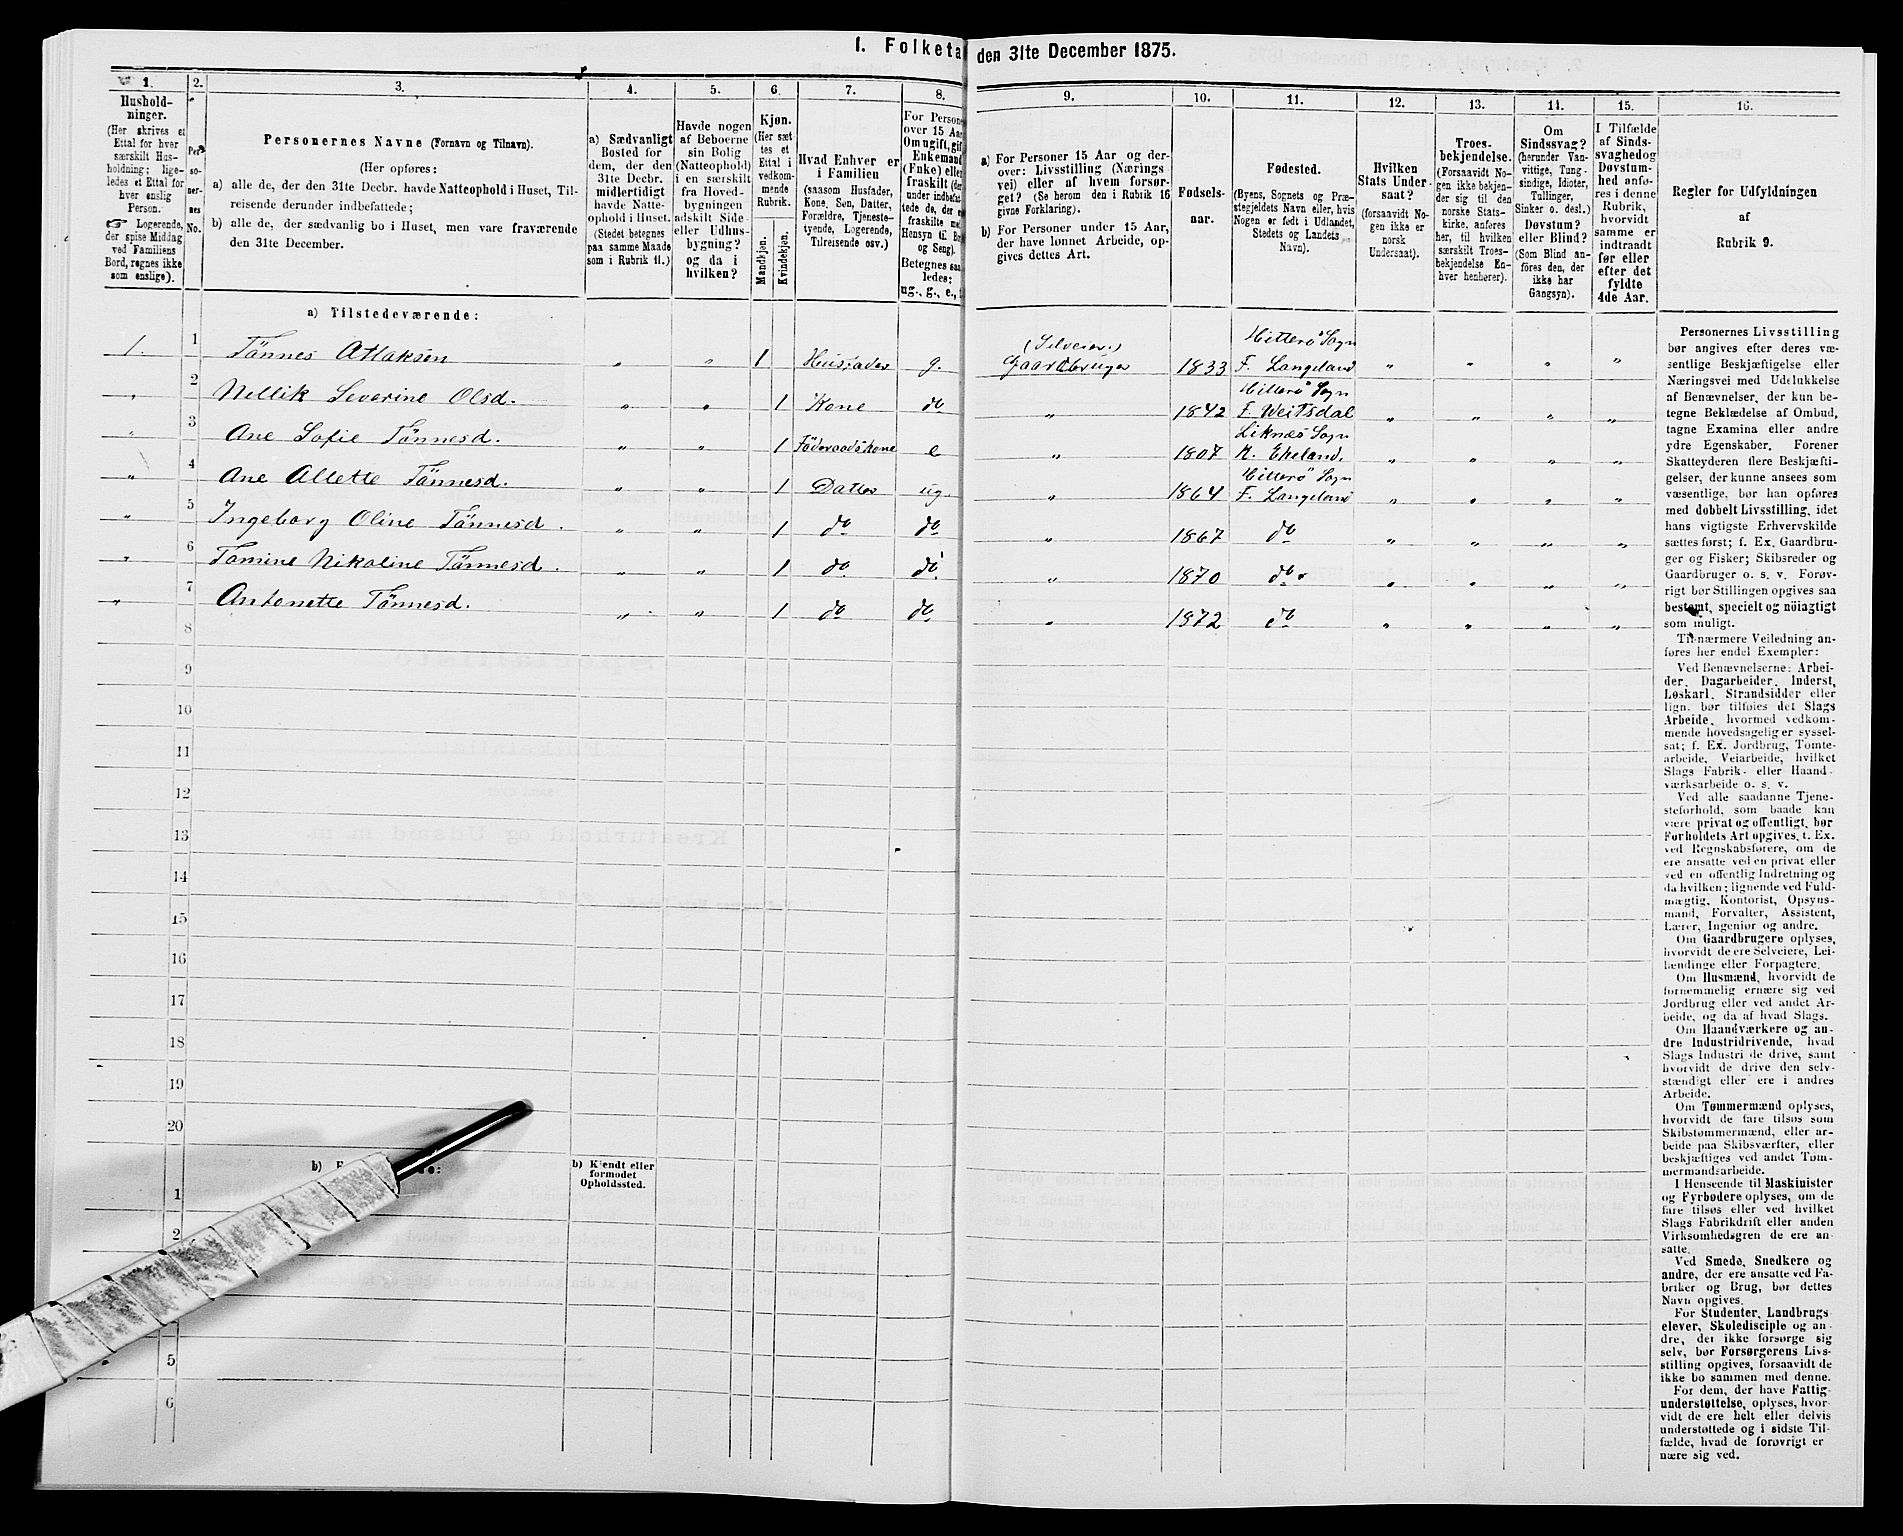 1. Folketa
den 31te December 1875.
1.
Hushold-
ninger.
(Her skrives et
Ettal for hver
særskilt Hus-
holdning; lige-
ledes et Ettal for
hver enslig
Person.
☞ Logerende,
der spise Middag
ved Familiens
Bord, regnes ikke
som enslige).
2.
Per-
so-
ner-
nes
No.
3.
Personernes Navne (Fornavn og Tilnavn).
(Her opføres:
a) alle de, der den 31te Decbr. havde Natteophold i Huset, Til-
reisende derunder indbefattede;
b) alle de, der sædvanlig bo i Huset, men vare fraværende
den 31te December.
4.
a) Sædvanligt
Bosted for
dem, der den
31te Decbr.
midlertidigt
havde Natte-
ophold i Huset.
(Stedet betegnes
paa samme Maade
som i Rubrik 11.)
5.
Havde nogen
af Beboerne
sin Bolig
(Natteophold)
i en særskilt
fra Hoved-
bygningen
adskilt Side-
eller Udhus-
bygning?
og da i
hvilken?
6.
Kjøn.
(Her sæt-
tes et
Ettal i
vedkom-
mende
Rubrik.
Mandkjøn.
Kvindekjøn.
7.
Hvad Enhver er
i Familien
(saasom Husfader,
Kone, Søn, Datter,
Forældre, Tjeneste-
tyende, Logerende,
Tilreisende osv.)
8.
For Person
over 15 Aar
Om ugift, gif
Enkemand
(Enke) eller
fraskilt (de
under indbefat-
tede de, der e
fraskilte me
Hensyn til Bo
og Seng).
Betegnes saa
ledes:
ug., g., e.,
9.
a) For Personer 15 Aar og der-
over: Livsstilling (Nærings-
vei) eller af hvem forsør-
get? (Se herom den i Rubrik 16
givne Forklaring).
b) For Personer under 15 Aar,
der have lønnet Arbeide, op-
gives dettes Art.
10.
Fødsels-
aar.
11.
Fødested.
(Byens, Sognets og Præ-
stegjeldets Navn eller, hvis
Nogen er født i Udlandet,
Stedets og Landets
Navn).
12.
Hvilken
Stats Under-
saat?
(forsaavidt No-
gen ikke er
norsk
Undersaat).
13.
Troes-
bekjendelse.
(Forsaavidt No-
gen ikke bekjen-
der sig til den
norske Stats-
kirke, anføres
her, til hvilken
særskilt Troes-
bekjendelse En-
hver henhører).
14.
Om
Sindssvag?
(herunder Van-
vittige, Tung-
sindige, Idioter,
Tullinger,
Sinker o. desl.)
Døvstum?
eller Blind?
(Som Blind an-
føres den, der
ikke har
Gangsyn).
15.
I Tilfælde
af Sinds-
svaghed og
Døvstum-
hed anfø-
res i denne
Rubrik,
hvorvidt
samme er
indtraadt
før eller
efter det
fyldte
4de Aar.
16.
Regler for Udfyldningen
af
Rubrik 9.
a) Tilstedeværende:
1. 1 Tönnes Atlaksen „ „ 1 Husfader g. (Selveier.) Gaardbruger 1833 Hitterö Sogn F. Langeland „ „ „ „
„ 2 Nellik Severine Olsd. „ „ 1 Kone do „ 1842 Hitterö Sogn F. Weitsdal „ „ „ „
„ 3 Ane Sofie Tönnesd. „ „ 1 Föderaadskone e „ 1807 Liknæs Sogn K. Eheland. „ „ „ „
„ 4 Ane Allette Tönnesd. „ „ 1 Datter ug. „ 1864 Hitterö Sogn F. Langeland „ „ „ „
„ 5 Ingeborg Oline Tönnesd. „ „ 1 do do „ 1867 do „ „ „ „
„ 6 Tomine Nikoline Tönnesd. „ „ 1 do do „ 1870 do „ „ „ „
„ 7 Antonette Tönnesd. „ „ 1 do do „ 1872 do „ „ „ „
8
9
10
11
12
13
14
15
16
17
18
19
20
b) F
de:
b) Kjendt eller
formodet
Opholdssted.
1
2
5
6
Personernes Livsstilling
bør angives efter deres væ-
sentlige Beskjæftigelse eller
Næringsvei med Udelukkelse
af Benævnelser, der kun be-
tegne Beklædelse af Ombud,
tagne Examina eller andre
ydre Egenskaber. Forener
Skatteyderen flere Beskjæfti-
gelser, der kunne ansees som
væsentlige, bør han opføres
med dobbelt Livsstilling, idet
hans vigtigste Erhvervskilde
sættes først; f. Ex. Gaardbru-
ger og Fisker; Skibsreder og
Gaardbruger o. s. v. Forøv-
rigt bør Stillingen opgives saa
bestemt, specielt og nöiagtigt
som muligt.
Til nærmere Veiledning an-
føres her endel Exempler:
Ved Benævnelserne: Arbei-
der, Dagarbeider, Inderst,
Løskarl, Strandsidder eller
lign. bør tilføies det Slags
Arbeide, hvormed vedkom-
mende hovedsagelig er syssel-
sat; f. Ex. Jordbrug, Tomte-
arbeide, Veiarbeide, hvilket
Slags Fabrik- eller Haand-
værksarbeide o. s. v.
Ved alle saadanne Tjene-
steforhold, som baade kan
være privat og offentligt, bør
Forholdets Art opgives, t. Ex.
ved Regnskabsførere, om de
ere ansatte ved en privat eller
ved en offentlig Indretning og
da hvilken; lignende ved Fuld-
mægtig, Kontorist, Opsyns-
mand, Forvalter, Assistent,
Lærer, Ingeniør og andre.
Om Gaardbrugere oplyses,
hvorvidt de ere Selveiere, Lei-
lændinge eller Forpagtere.
Om Husmænd, hvorvidt de
fornemmelig ernære sig ved
Jordbrug eller ved andet Ar-
beide, og da af hvad Slags.
Om Haandværkere og an-
dre Industridrivende, hvad
Slags Industri de drive, samt
hvorvidt de drive den selv-
stændigt eller ere i andres
Arbeide.
Om Tømmermænd oplyses,
hvorvidt de fare tilsøs som
Skibstømmermænd, eller ar-
beide paa Skibsværfter, eller
beskjæftiges ved andet Tøm-
mermandsarbeide.
I Henseende til Maskinister
og Fyrbødere oplyses, om de
fare tilsøs eller ved hvilket
Slags Fabrikdrift eller anden
Virksomhedsgren de ere an-
satte.
Ved Smede, Snedkere og
andre, der ere ansatte ved Fa-
briker og Brug, bør dettes
Navn opgives.
For Studenter, Landbrugs-
elever, Skoledisciple og an-
dre, der ikke forsørge sig
selv, bør Forsørgerens Livs-
stilling opgives, forsaavidt de
ikke bo sammen med denne.
For dem, der have Fattig-
understøttelse, oplyses, hvor-
vidt de ere helt eller delvis
understøttede og i sidste Til-
fælde, hvad de forøvrigt er-
nære sig ved.